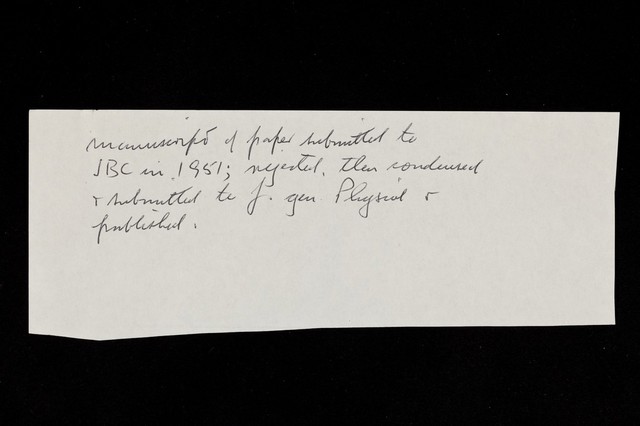 manuscript of paper submitted to
JBC in 1951; rejected, then condensed
& submitted to J. gen. Physiol &
published.